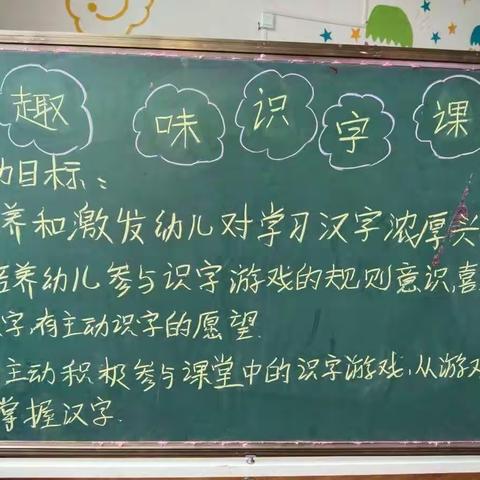 趣味识字课
动目标：
养和激发幼儿对学习汉字浓厚兴
培养幼儿参与识字游戏的规则意识,喜
字,有主动识字的愿望.
主动积极参与课堂中的识字游戏,从游戏
掌握汉字.